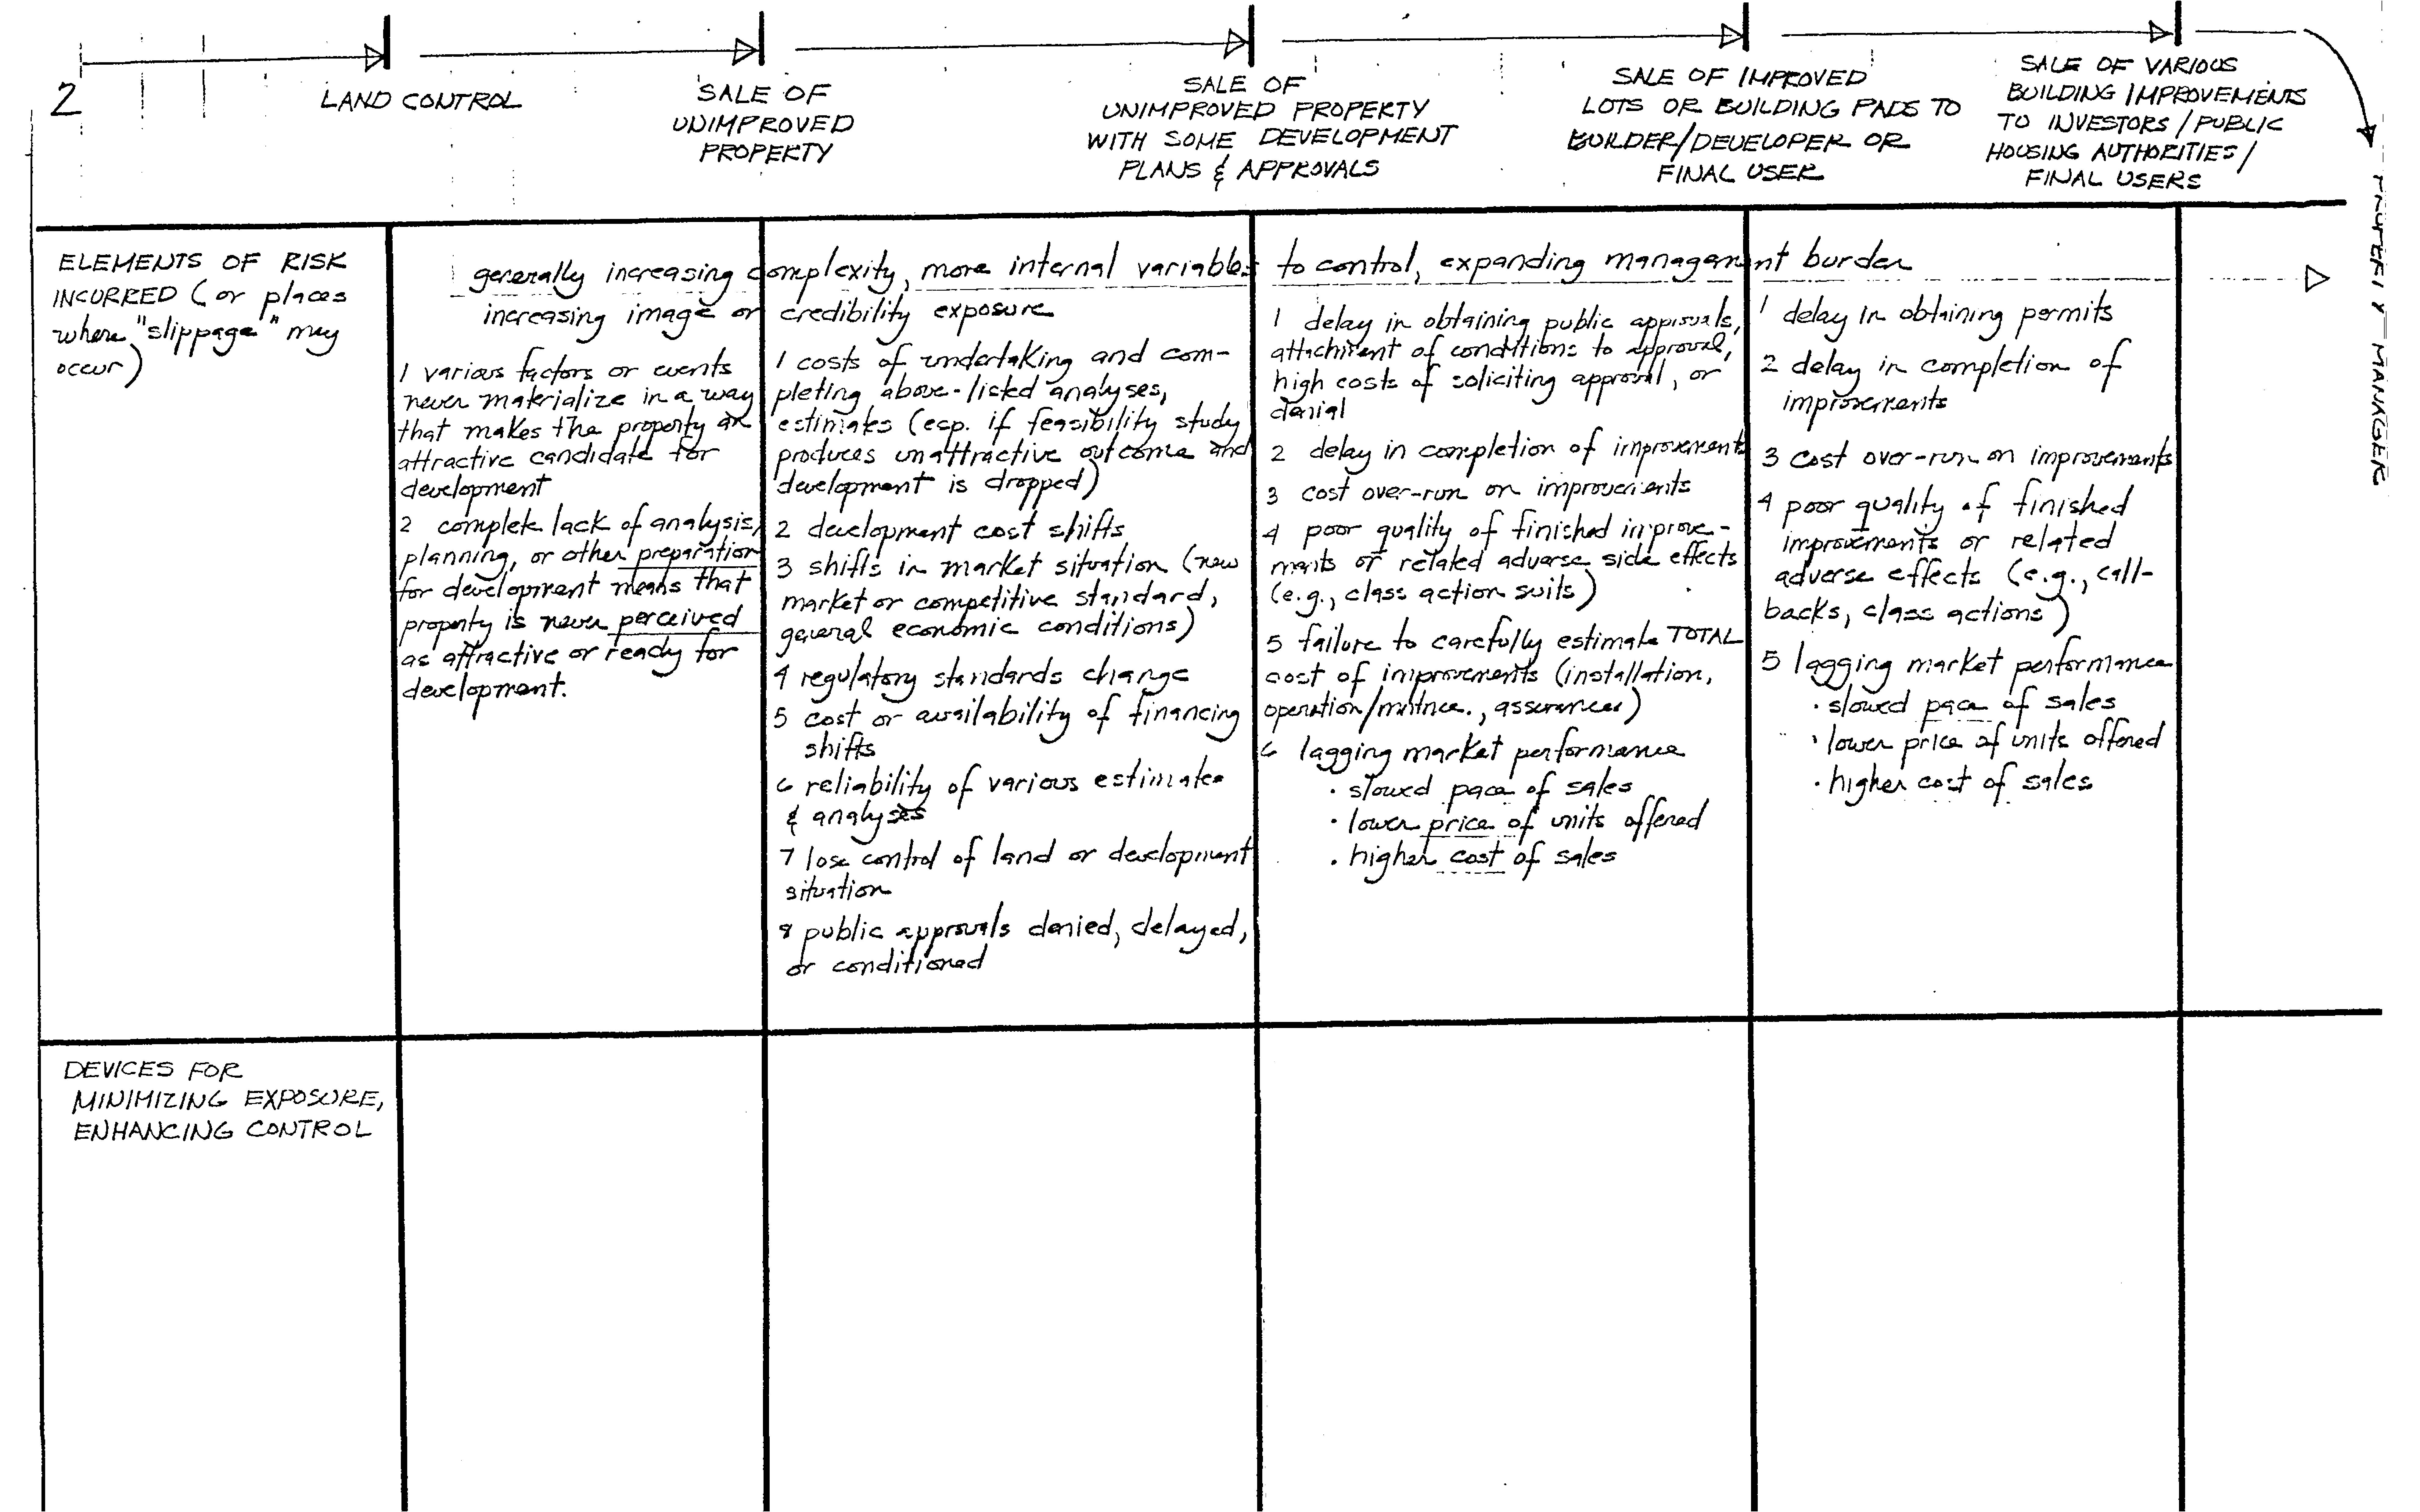 2
LAND CONTROL
SALE OF
UNIMPROVED
PROPERTY
SALE OF
UNIMPROVED PROPERTY
WITH SOME DEVELOPMENT
PLANS & APPROVALS
SALE OF IMPROVED
LOTS OR BUILDING PADS TO
BUILDER/DEVELOPER OR
FINAL USER
SALE OF VARIOUS
BUILDING IMPROVEMENTS
TO INVESTORS/PUBLIC
HOUSING AUTHORITIES/
FINAL USERS
PROPERTY MANAGER
ELEMENTS OF RISK
INCURRED (or places
where "slippage" may
occur)
generally increasing complexity, more internal variables to control, expanding management burden
increasing image or credibility exposure
1 various factors or events
never materialize in a way
that makes the property an
attractive candidate for
development
2 complete lack of analysis,
planning, or other preparation
for development means that
property is never perceived
as attractive or ready for
development.
1 costs of undertaking and com-
pleting above-listed analyses,
estimates (esp. if feasibility study
produces unattractive outcome and
development is dropped)
2 development cost shifts
3 shifts in market situation (new
market or competitive standard,
general economic conditions)
4 regulatory standards change
5 cost or availability of financing
shifts
6 reliability of various estimates
& analyses
7 lose control of land or development
situation
8 public approvals denied, delayed,
or conditioned
1 delay in obtaining public approvals,
attachment of conditions to approval,
high costs of soliciting approval, or
denial
2 delay in completion of improvements
3 cost over-run on improvements
4 poor quality of finished improve-
ments or related adverse side effects
(e.g., class action suits)
5 failure to carefully estimate TOTAL
cost of improvements (installation,
operation/mntnce., assurances)
6 lagging market performance
• slowed pace of sales
• lower price of units offered
• higher cost of sales
1 delay in obtaining permits
2 delay in completion of
improvements
3 cost over-run on improvements
4 poor quality of finished
improvements or related
adverse effects (e.g., call-
backs, class actions)
5 lagging market performance
• slowed pace of sales
• lower price of units offered
• higher cost of sales
DEVICES FOR
MINIMIZING EXPOSURE,
ENHANCING CONTROL